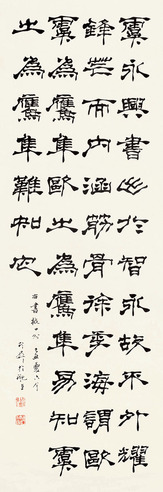 虞永興書出於智永故不外耀
鋒芒而內涵筋骨徐季海謂歐
虞為鷹隼歐之為鷹隼易知虞
之為鷹隼難知也